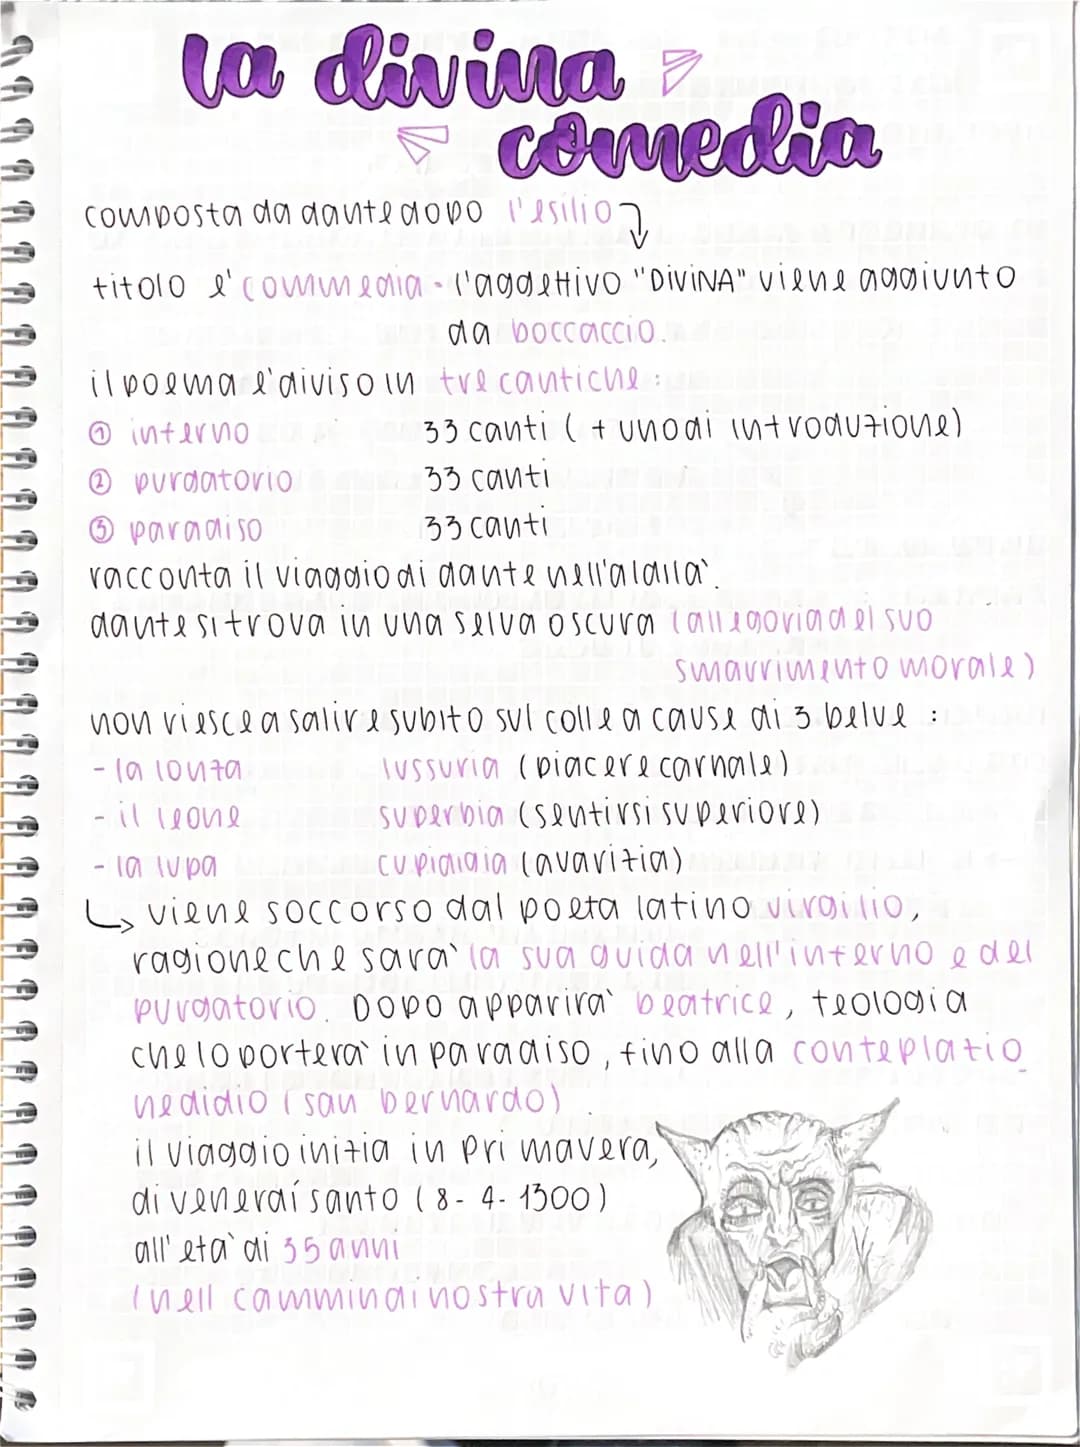 la divina
comedia
composta da dante dopo l'esilio
titolo e' commedia - l'aggettivo "DiViNA" viene aggiunto
da boccaccio.
il poema e' diviso in tre cantiche:
① inferno 33 canti (+ uno di introduzione)
② purgatorio 33 canti
③ paradiso 33 canti
racconta il viaggio di dante nell'aldila'.
dante si trova in una selva oscura (allegoria del suo
smarrimento morale)
non riesce a salire subito sul colle a cause di 3 belve :
- la lonza lussuria (piacere carnale)
- il leone superbia (sentirsi superiore)
- la lupa cupidigia (avarizia)
viene soccorso dal poeta latino virgilio,
ragione che sara' la sua guida nell'inferno e del
purgatorio. Dopo apparira' beatrice, teologia
che lo portera' in paradiso, fino alla conteplatio_
ne di dio (san bernardo).
il viaggio inizia in primavera,
di venerdí santo (8-4-1300)
all'eta' di 35 anni
(nell cammin di nostra vita)